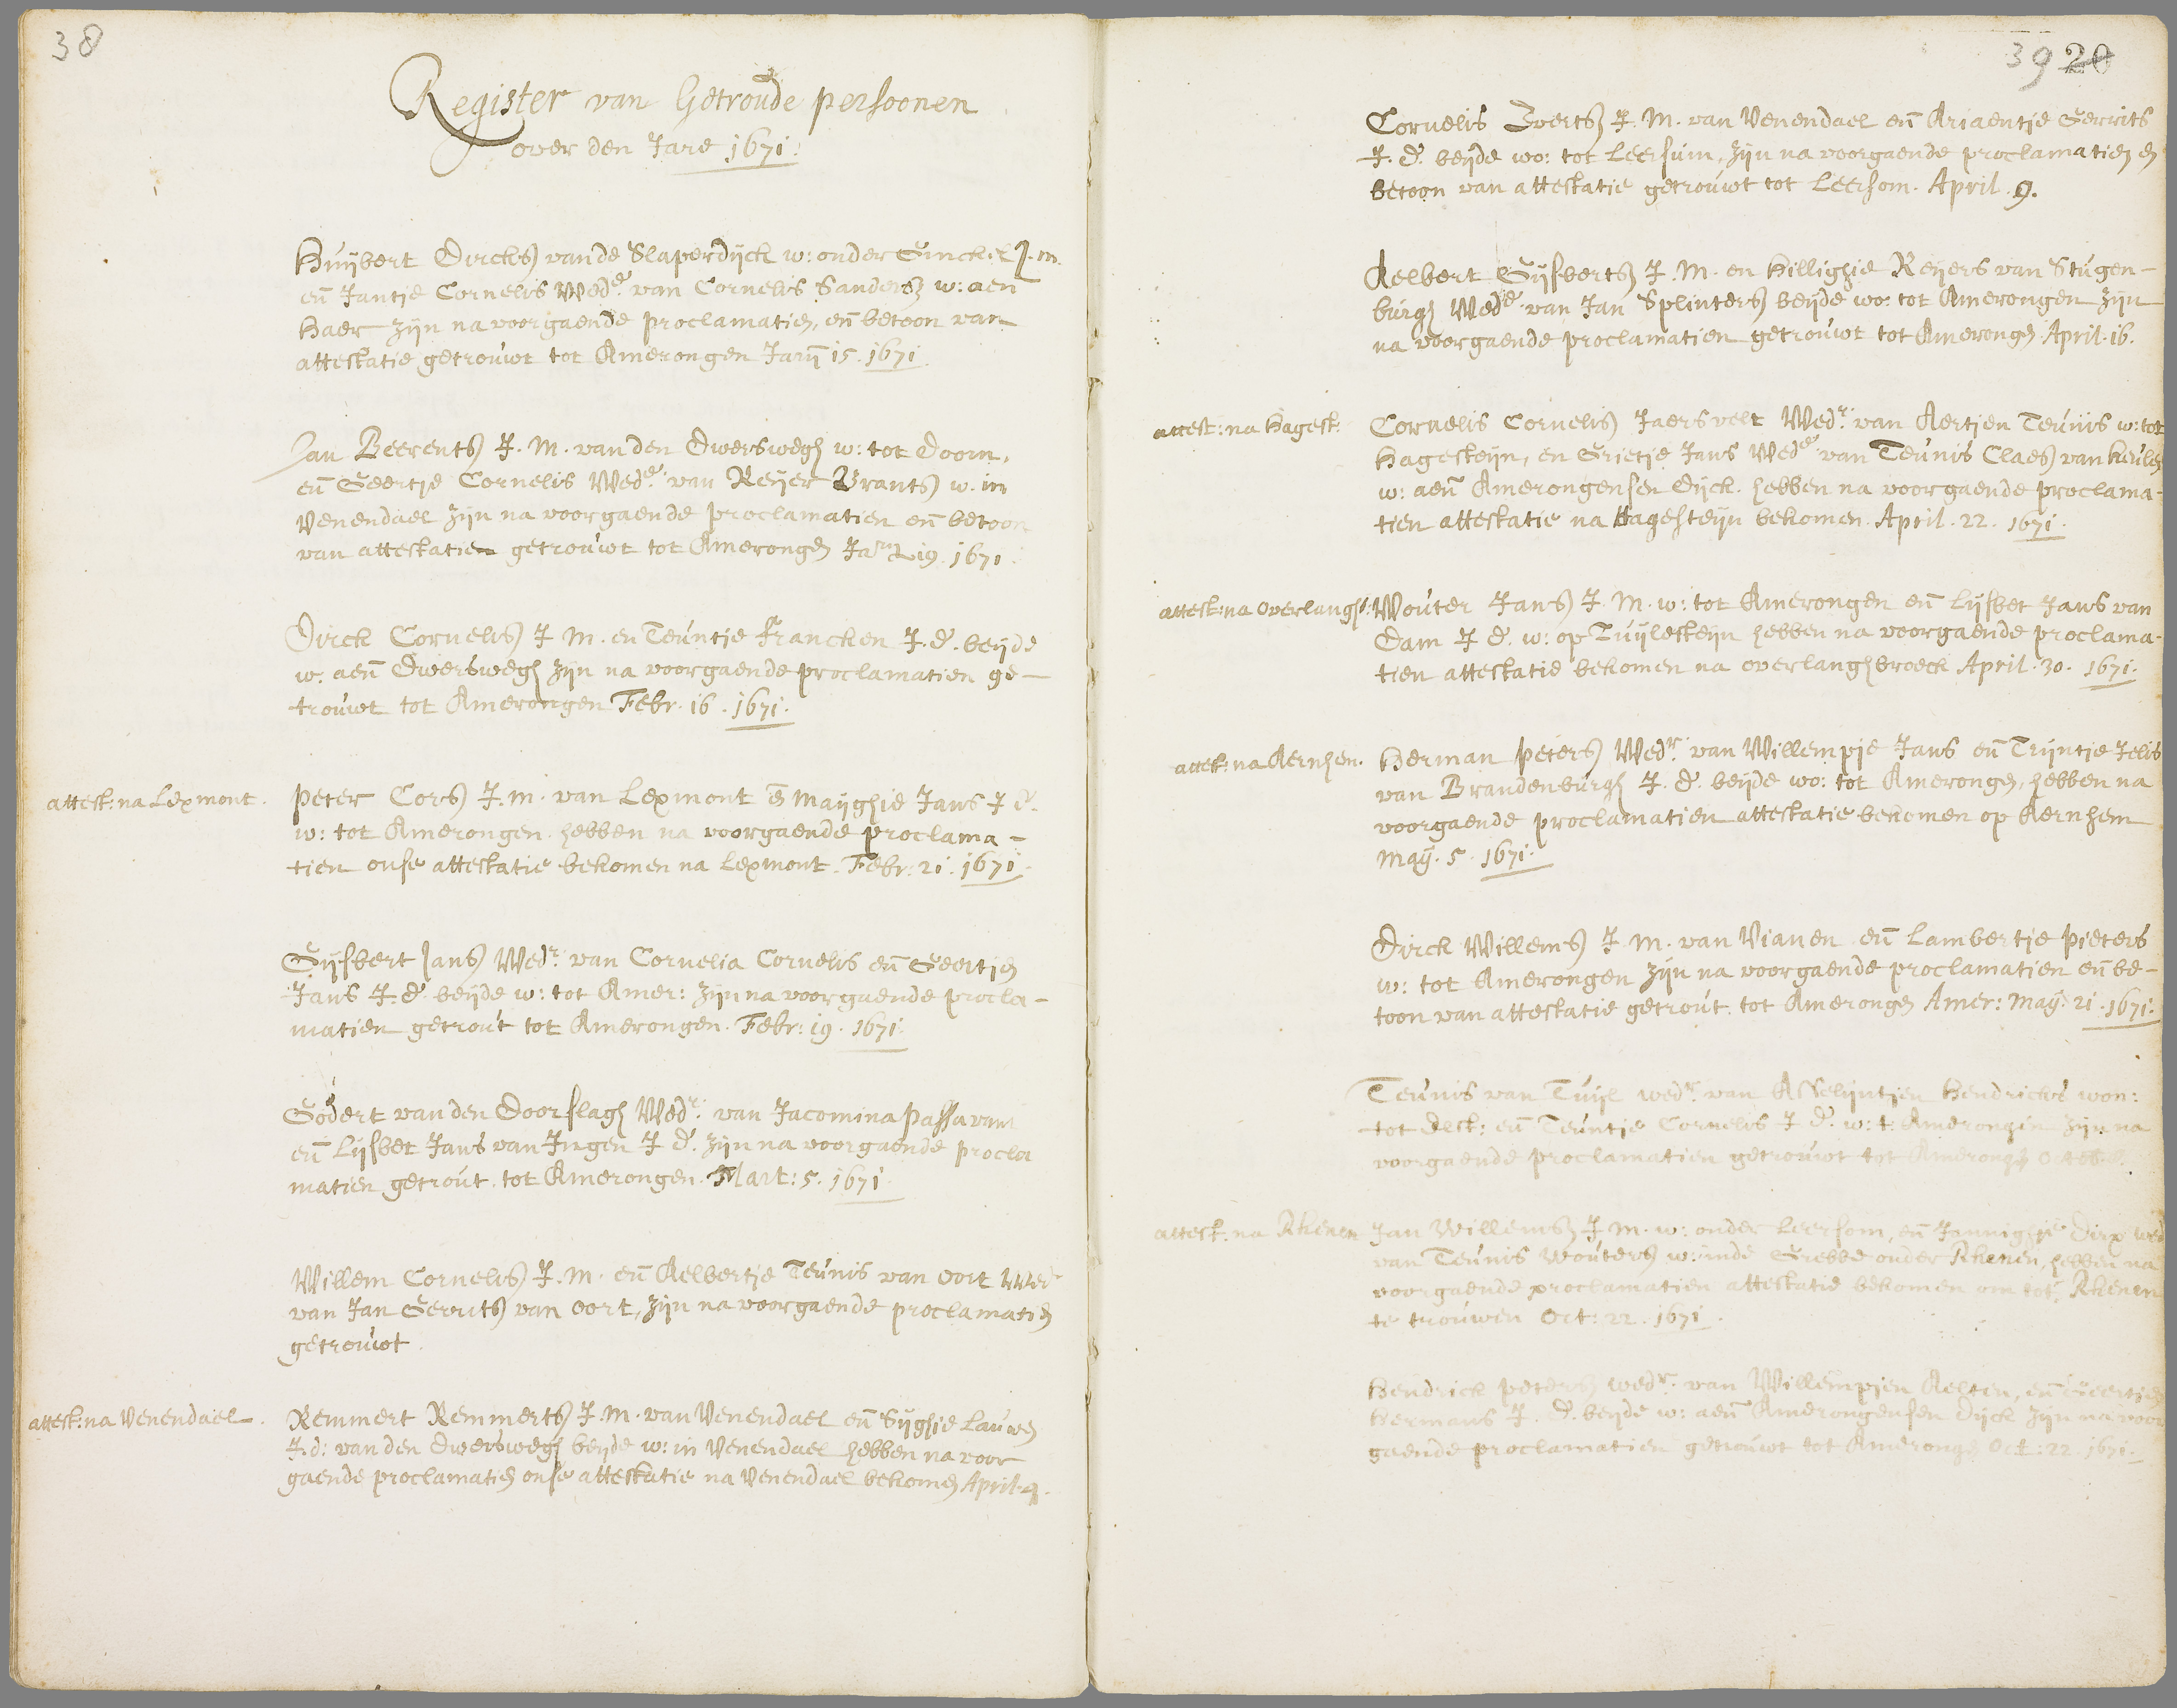 38
Register van Getroude persoonen
over den Jare 1671.
Huijbert Dircks vande Slaperdijck w: onder Ginckel J.m.
en Jantje Cornelis Wedᵉ van Cornelis Sanders w: aen
Haer zijn na voorgaende proclamatien, en betoon van
attestatie getrouwt tot Amerongen Jarij 15. 1671
Jan Beerents J. M. van den Dwerswegh w: tot Doorn,
en Geertje Cornelis Wedᵉ van Reijer Brants w. in
Venendael zijn na voorgaende proclamatien en betoon
van attestatien getrouwt tot Amerongen 19. 1671
Dirck Cornelis J M. en Teuntje Francken J. d. beijde
w. aen Dwerswegh zijn na voorgaende proclamatien ge-
trouwt tot Amerongen Febr. 16. 1671.
attest: na Lexmont.
Peter Cors J. m. van Lexmont en Maijghie Jans J d.
w: tot Amerongen hebben na voorgaende proclama-
tien onse attestatie bekomen na Lexmont. Febr. 21. 1671.
Gijsbert Jans Wedʳ van Cornelia Cornelis en Geertjen
Jans J. d. beijde w: tot Amer: zijn na voorgaende procla-
matien getrout tot Amerongen. Febr: 19. 1671.
Godert van den Doorslagh Wedʳ van Jacomina Passavant
en Lijsbet Jans van Ingen J d. zijn na voorgaende procla
matien getrout tot Amerongen. Mart: 5. 1671
Willem Cornelis J. M. en Aelbertje Teunis van Oort Wed
van Jan Gerrits van Oort, zijn na voorgaende proclamatien
getrouwt.
attest: na Venendael.
Remmert Remmerts J. M. van Venendael en Sijghie Lauwen
J. d: van den Dwerswegh beijde w: in Venendael hebben na voor
gaende proclamatien onse attestatie na Venendael bekomen April.
39 20
Cornelis Everts J. M. van Venendael en Ariaentje Gerrits
J. d. beijde wo: tot Leersum, zijn na voorgaende proclamatien en
betoon van attestatie getrouwt tot Leersom. April. 9.
Aelbert Gijsberts J. M. en Hillighie Reijers van Stugen-
burgh Wedᵉ van Jan Splinters beijde wo: tot Amerongen zijn
na voorgaende proclamatien getrouwt tot Amerongen April. 16.
attest: na Hagest:
Cornelis Cornelis Jaersvelt Wedʳ van Aertjen Teunis w: tot
Hagesteijn, en Grietje Jans Wedᵉ van Teunis Claes van Keulen
w: aen Amerongensen Dijck. hebben na voorgaende proclama-
tien attestatie na Hagesteijn bekomen. April. 22. 1671.
attest: na Overlangh:
Wouter Jans J. M. w: tot Amerongen en Lijsbet Jans van
Dam J d. w: op Zuijlesteijn hebben na voorgaende proclama-
tien attestatie bekomen na overlanghbroeck April. 30. 1671.
attest: na Aernhem.
Herman Peters Wedʳ van Willempje Jans en Trijntje Jelis
van Brandenburgh J. d. beijde wo: tot Amerongen, hebben na
voorgaende proclamatien attestatie bekomen op Aernhem
Maij. 5. 1671.
Dirck Willems J. M. van Vianen en Lambertje Pieters
w: tot Amerongen zijn na voorgaende proclamatien en be-
toon van attestatie getrout tot Amerongen Amer: Maij. 21. 1671.
Teunis van Tuijl wedʳ van Asselijntjen Hendricks won:
tot Elst; en Teuntje Cornelis J d. w: t: Amerongen zijn na
voorgaende proclamatien getrouwt tot Amerongen
attest. na Rhenen
Jan Willems J. M. w: onder Leersom, en Jannighje Dirx wed
van Teunis Wouters w: inde Grebbe onder Rhenen, hebben na
voorgaende proclamatien attestatie bekomen om tot Rhenen
te trouwen Oct: 22. 1671.
Hendrick Peters wedʳ van Willempjen Aelten, en Geertjen
Hermans J. d. beijde w: aen Amerongensen Dijck zijn na voor
gaende proclamatien getrouwt tot Amerongen Oct: 22. 1671.